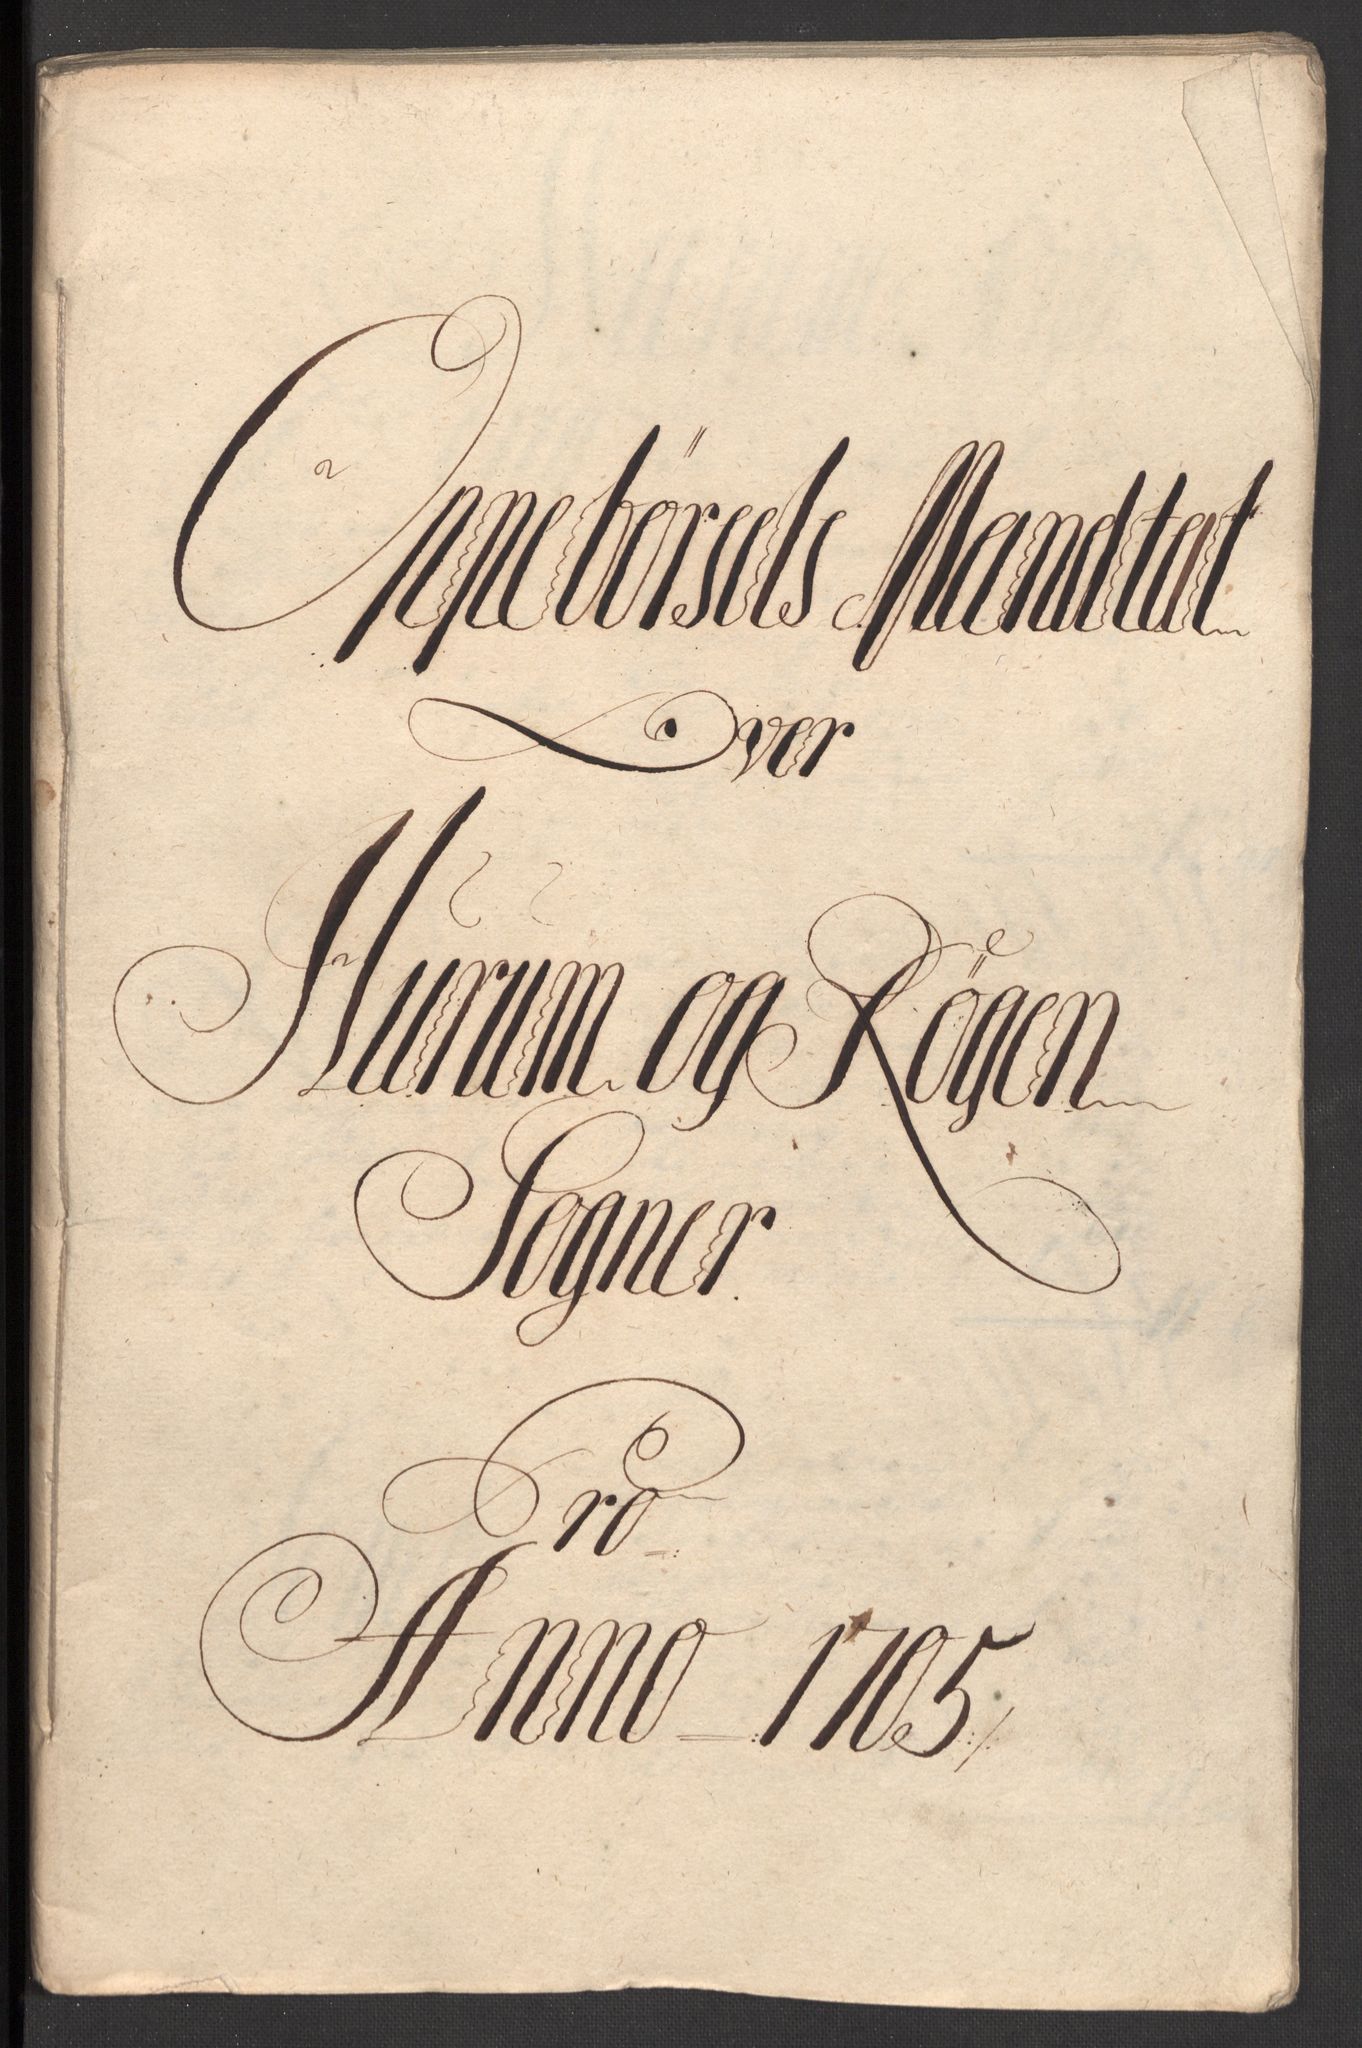 Oppebørsels Mandtal
Over
Hurum og Røgen
Sogner
Pro
Anno 1705